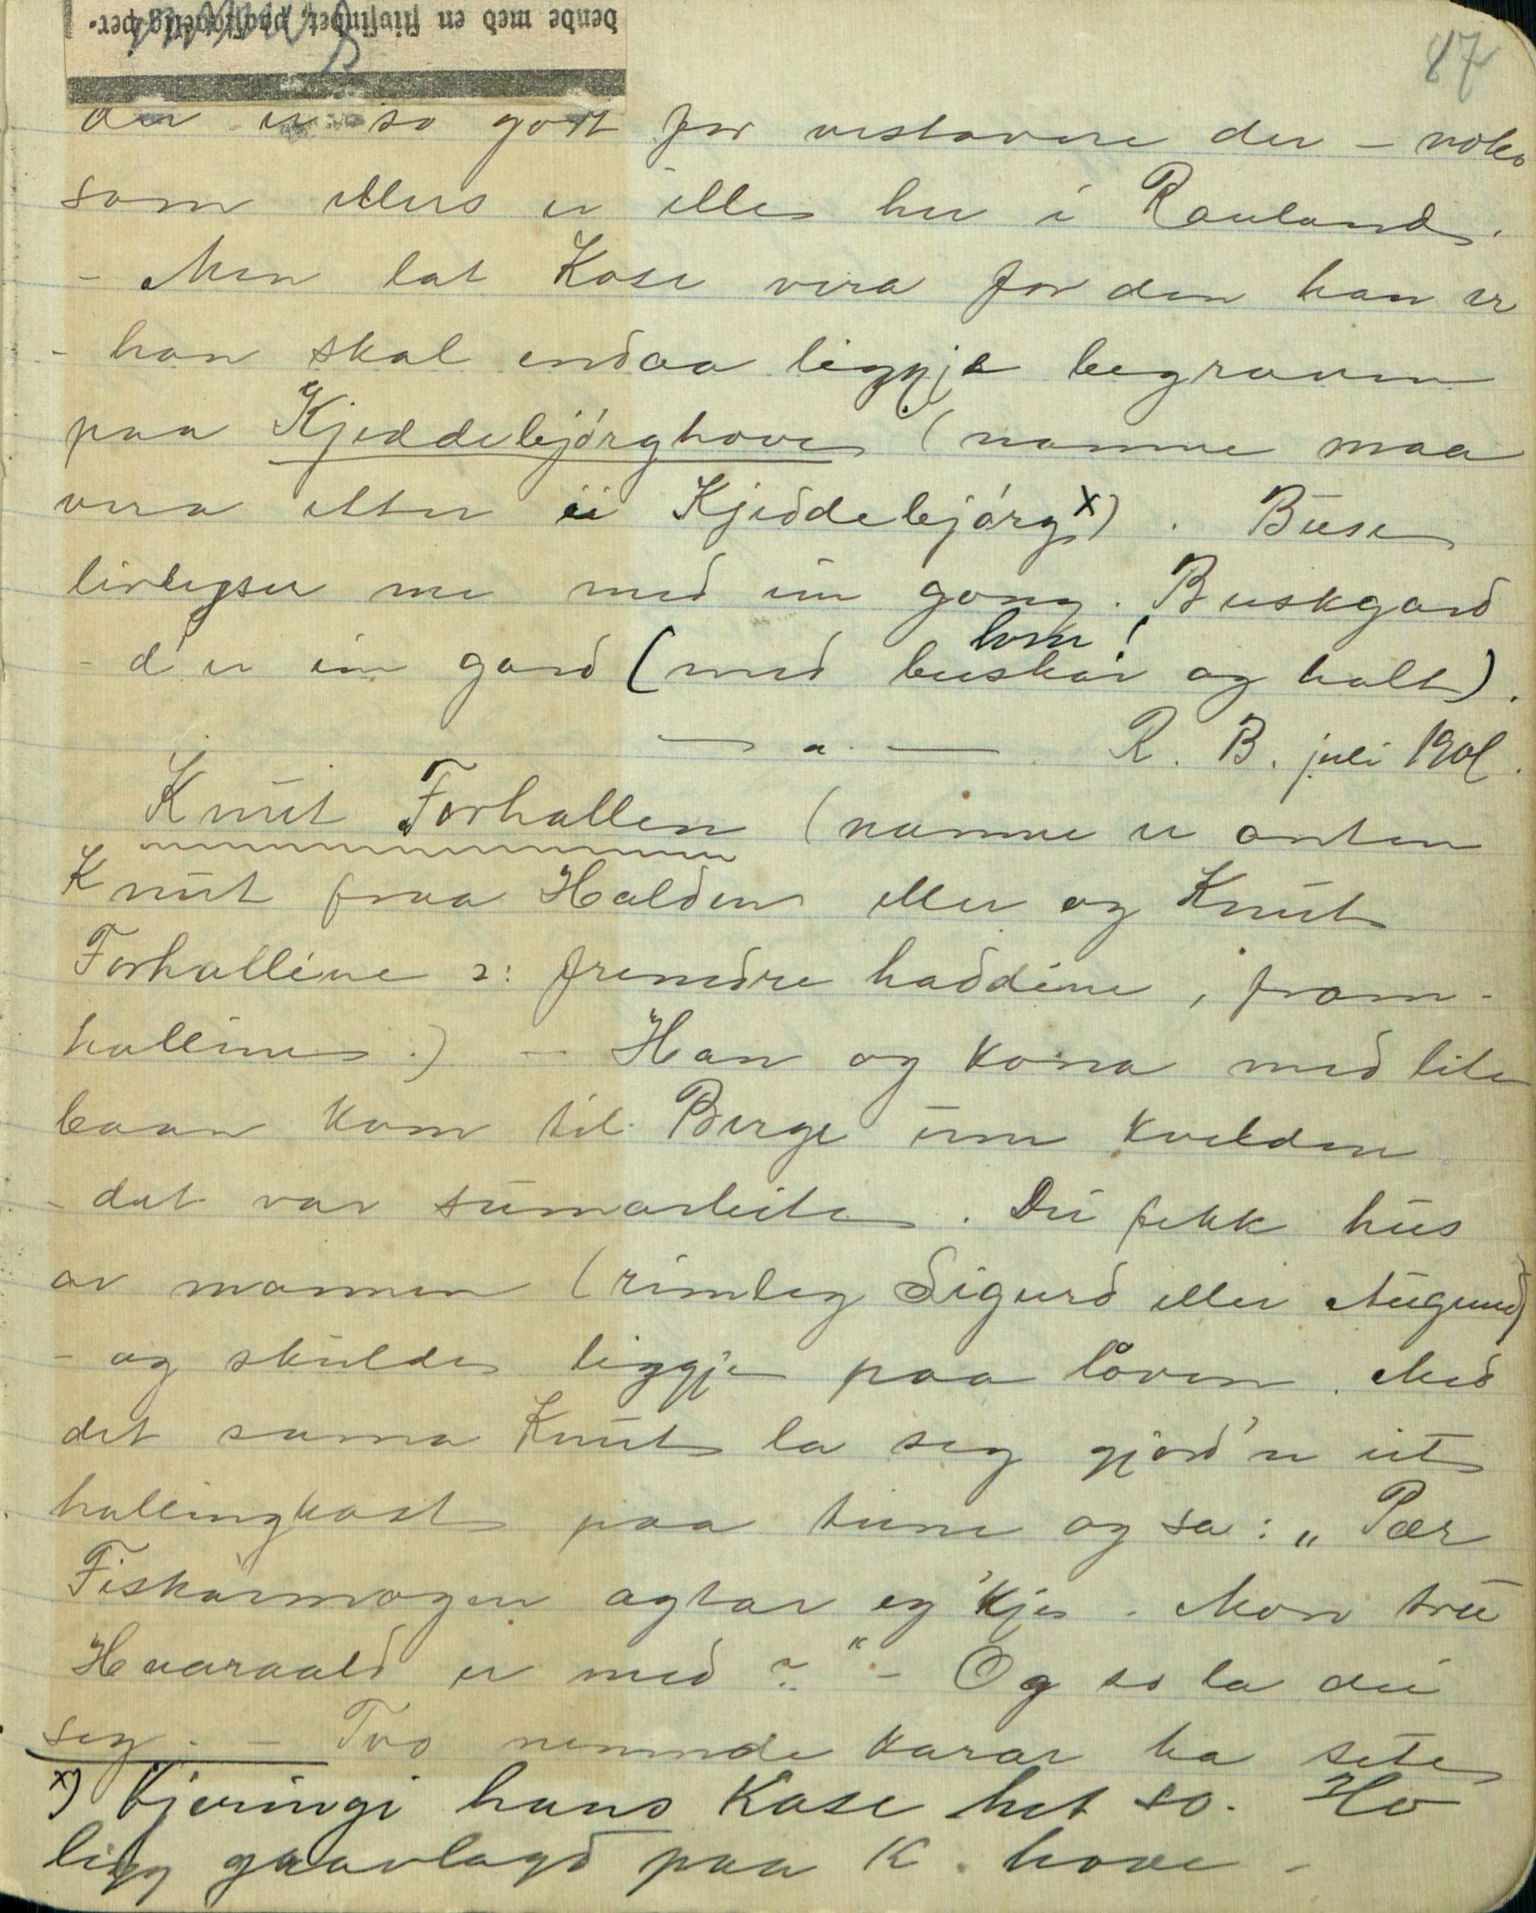 bende med en slivsindet, paastaaelig per-
87
der er so godt for vestavere der – noko
som ellers er ille her i Rauland.
– Men lat Kose vera for den han er
– han skal endaa liggje begraven
paa Kjeddebjórghove (namne maa
vera etter ei Kjeddebjórg x) . Buse
med ein gong. Buskgard
– d'er ein gard (med buskar og holt).
hom!
— " — R. B. juli 1901.
Knut Forhallen (namne er anten
Knut fraa Halden eller og Knut
Forhalline ɔ: fremdre haddine, fram-
halline.) – Han og kona med lite
baan kom til Berge um kvelden
– dat var sumarleite. Dei fekk hus
av mannen (rimleg Sigurd eller Augund)
– og skulde liggje paa låven. Med
det sama Knut la seg gjord'n eit
hallingkast paa tune og sa: „Pær
Fiskarmogen agtar eg 'kje. Mon tru
Hvaraald er med?“ – Og so la dei
seg. – Tvo nemnde karar ha sete
x) Kjeringi hans Kose het so. Ho
ligg gravlagd paa K. hove –